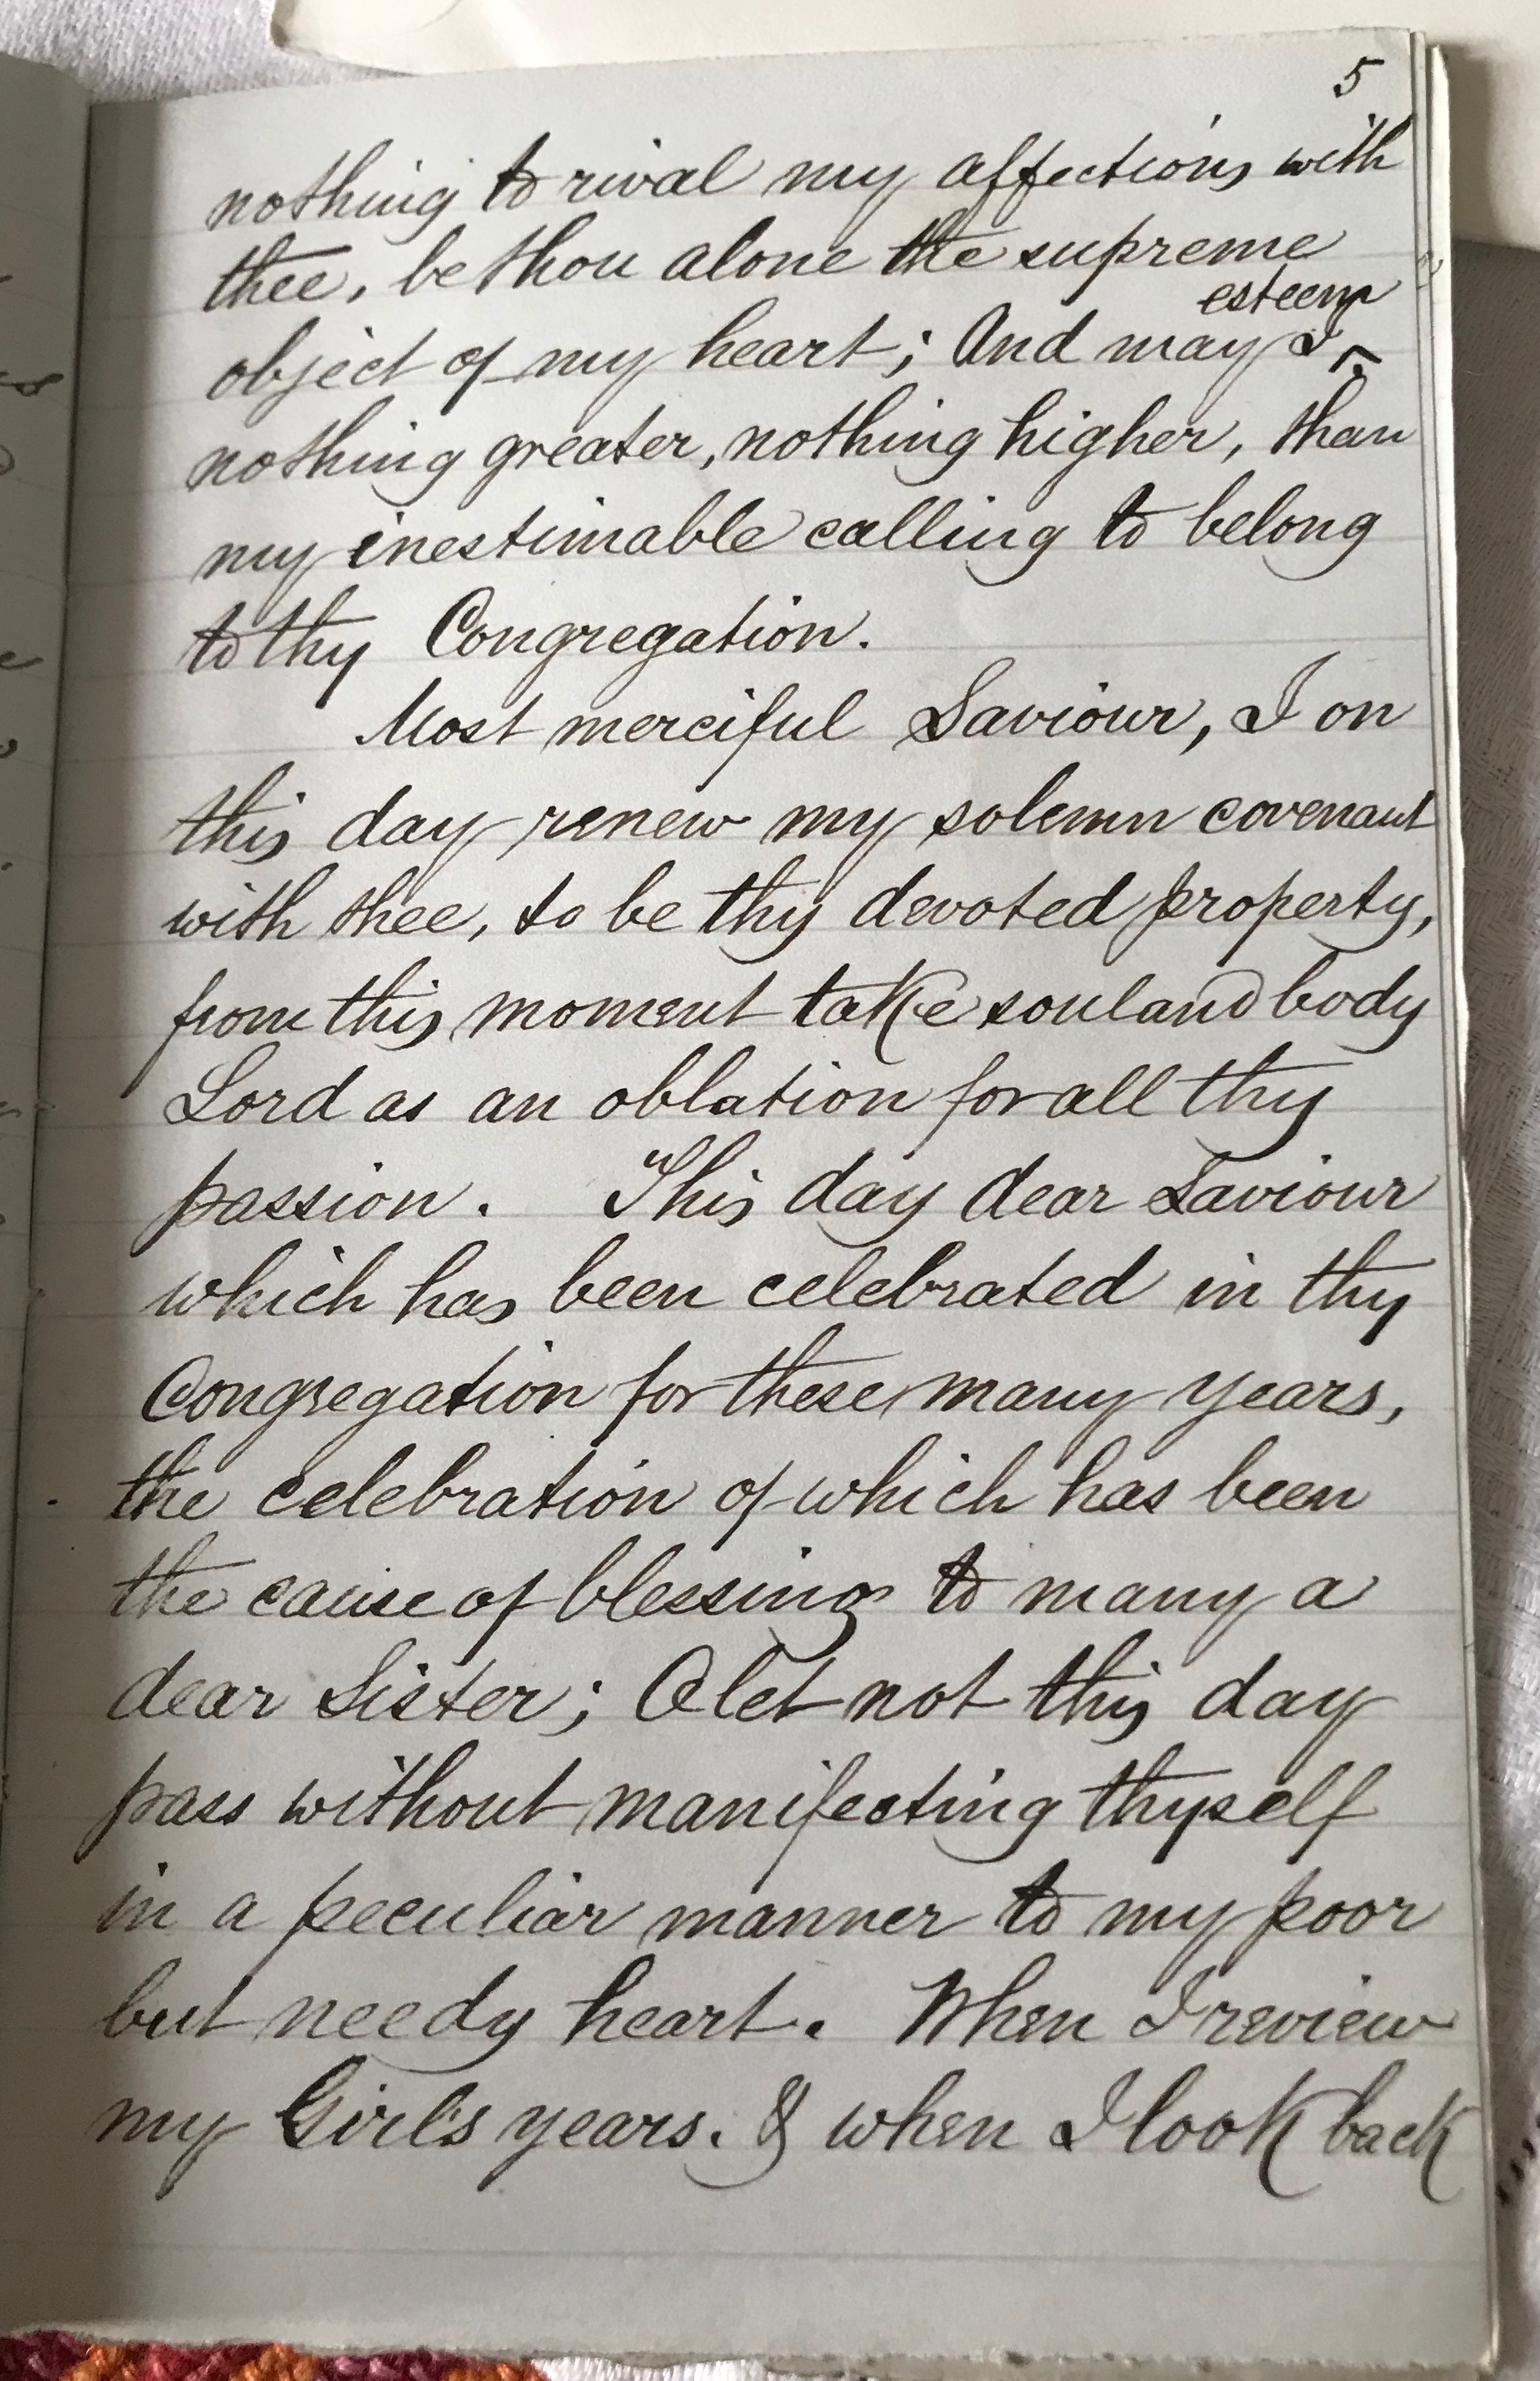 5
nothing to rival my affections with
thee, be thou alone the supreme
esteem
object of my heart; And may I ^
nothing greater, nothing higher, than
my inestimable calling to belong
to thy Congregation.
Most merciful Saviour, I on
this day renew my solemn covenant
with thee, to be thy devoted property,
from this moment take soul and body
Lord as an oblation for all thy
passion. This day dear Saviour
which has been celebrated in thy
Congregation for these many years,
the celebration of which has been
the cause of blessing to many a
dear Sister; O let not this day
pass without manifesting thyself
in a peculiar manner to my poor
but needy heart. When I review
my Girl's years. & when I look back